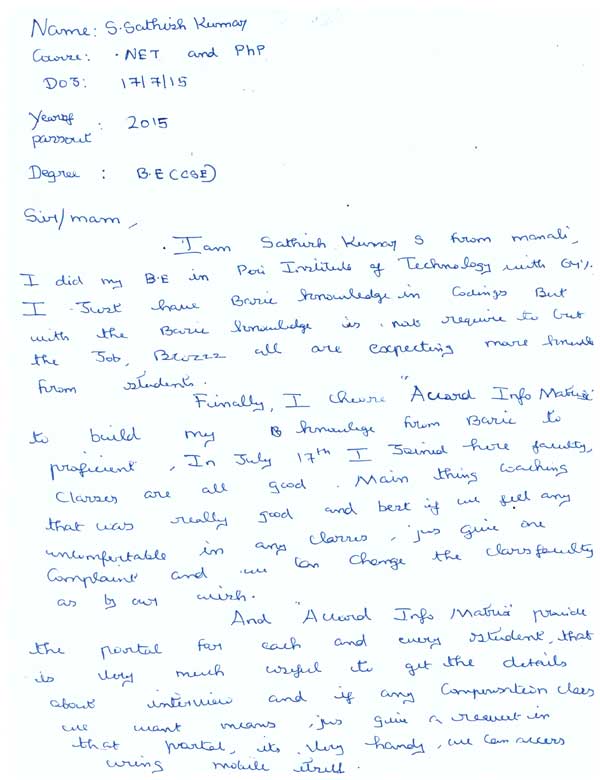 Name: S. Sathish Kumar
Course: .NET and PHP
DOJ: 17/7/15
Year of : 2015
passout
Degree : B.E (CSE)
Sir/mam,
I am Sathish Kumar S from manali,
I did my B.E in Peri Institute of Technology with 64%.
I Just have Basic knowledge in Codings But
with the Basic knowledge is not require to
the Job, all are expecting more
from students.
Finally, I "Accord Info Matrix"
to build my from Basic to
proficient, In July 17th I Joined here faculty,
Classes are all good. Main thing coaching
that was really good and best if we feel any
in any classes, jus give one
Complaint and we can change the class faculty
as by our wish.
And "Accord Info Matrix" provide
the portal for each and every student, that
is very much useful to get the details
about interview and if any class
we want means, jus give a request in
that portal, its very handy, we can access
using mobile itself.